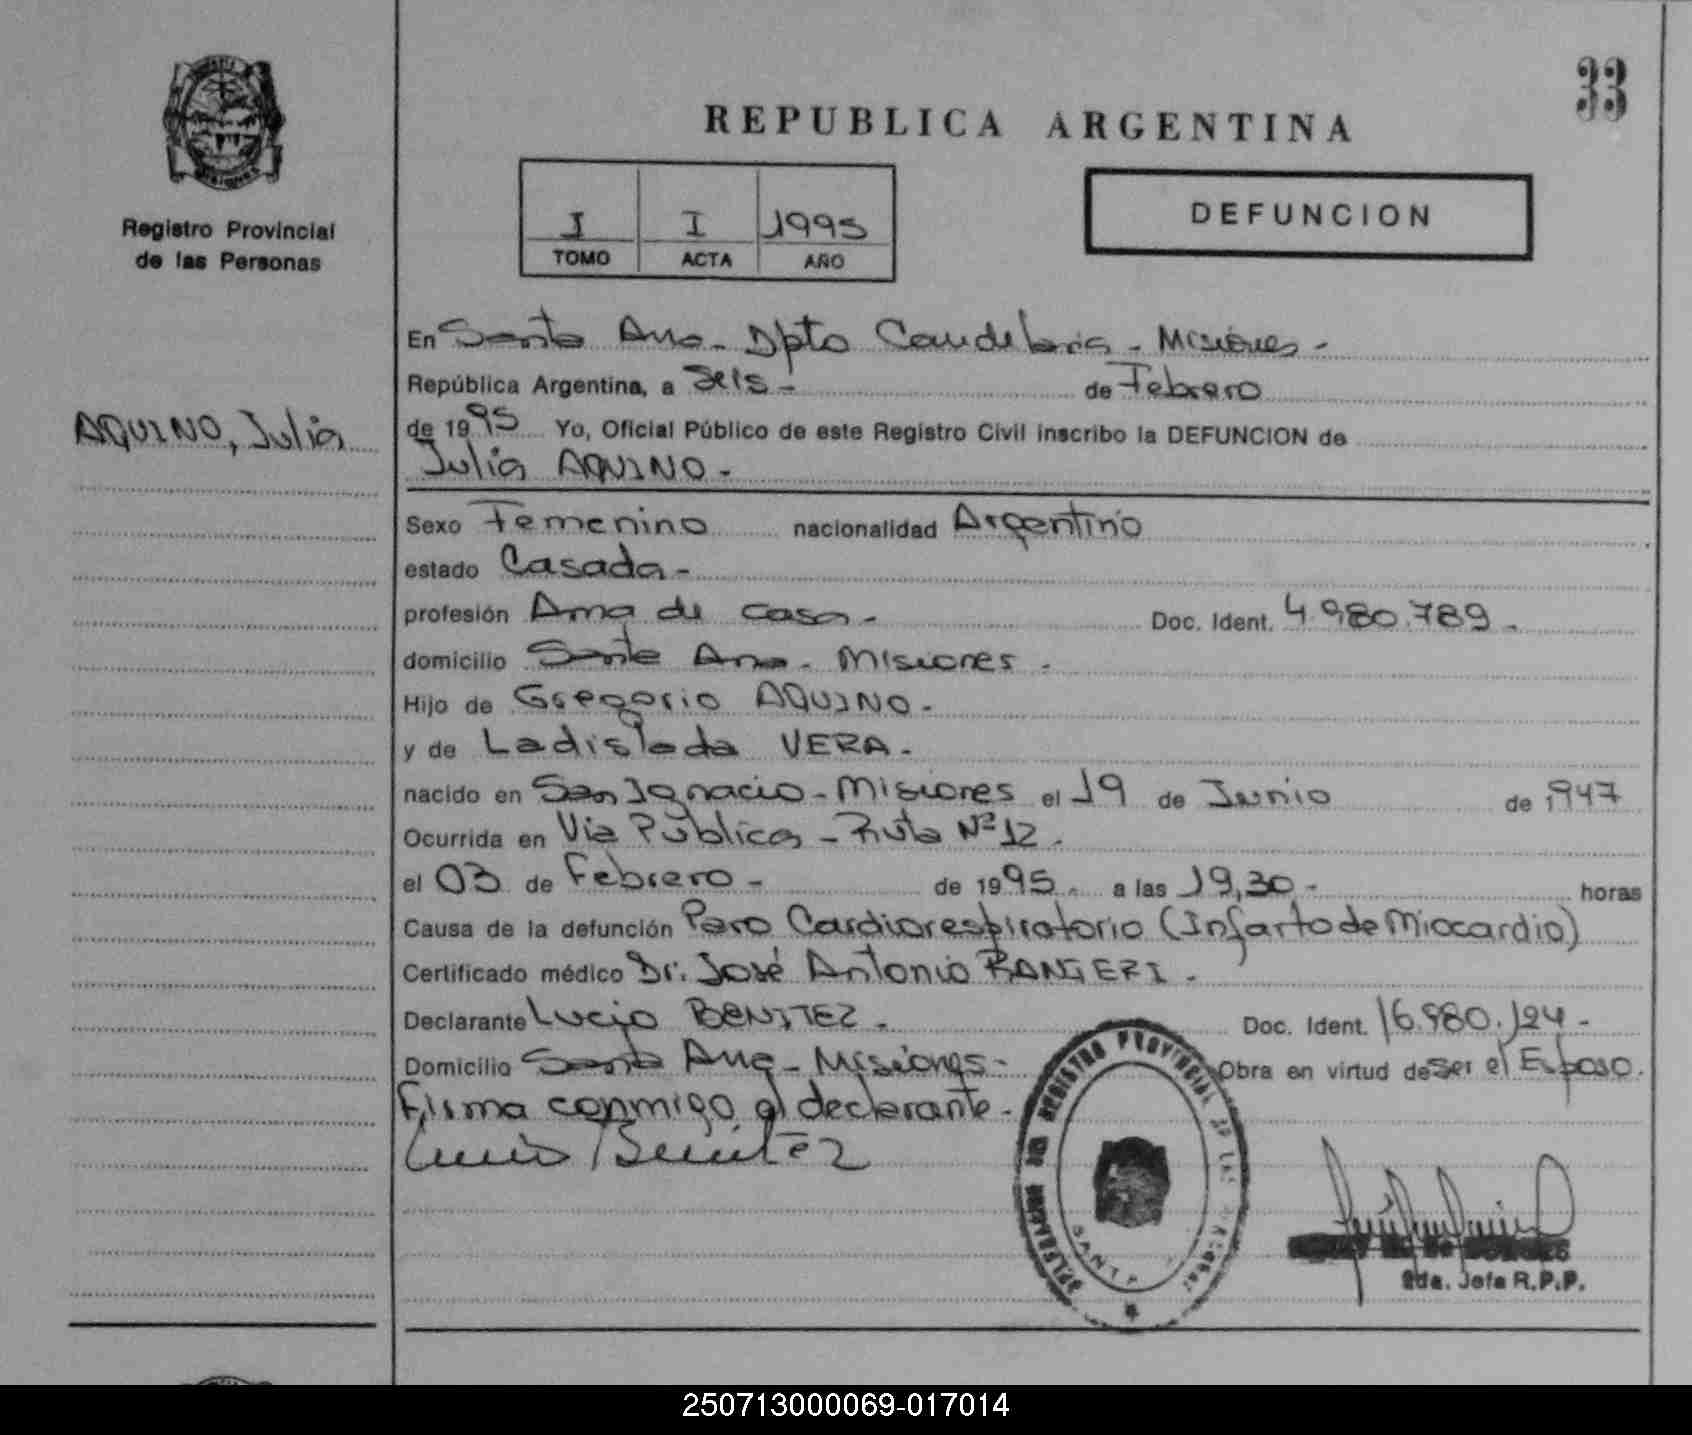 33
REPUBLICA ARGENTINA
MISIONES
Registro Provincial
de las Personas
I I 1995
TOMO ACTA AÑO
DEFUNCION
AQUINO, Julia
En Santa Ana - Dpto Candelaria - Misiones -
República Argentina, a Seis - de Febrero
de 1995 Yo, Oficial Público de este Registro Civil inscribo la DEFUNCION de
Julia AQUINO -
Sexo Femenino nacionalidad Argentino
estado Casada -
profesión Ama de casa - Doc. Ident. 4.980.789 -
domicilio Santa Ana - Misiones -
Hijo de Gregorio AQUINO -
y de Ladislada VERA -
nacido en San Ignacio - Misiones el 19 de Junio de 1947
Ocurrida en Via Pública - Ruta Nº 12 .
el 03 de Febrero - de 1995 - a las 19,30 - horas
Causa de la defunción Paro Cardiorespiratorio (Infarto de Miocardio)
Certificado médico Dr. José Antonio RANGERI -
Declarante Lucio BENITEZ - Doc. Ident. 16.980.124 -
Domicilio Santa Ana - Misiones - Obra en virtud de ser el Esposo.
Firma conmigo el declarante -
Lucio Benitez
REGISTRO PROVINCIAL DE LAS
SANTA
2da. Jefa R.P.P.
250713000069-017014